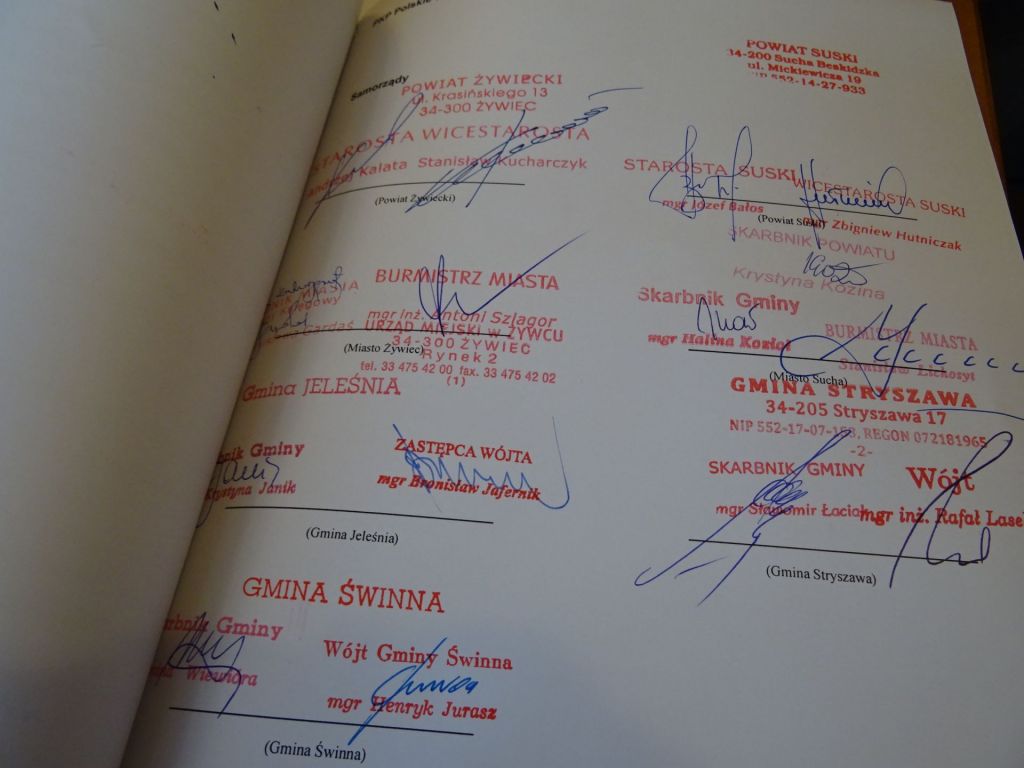 PKP Polskie
Samorządy
POWIAT ŻYWIECKI
ul. Krasińskiego 13
34-300 ŻYWIEC
STAROSTA WICESTAROSTA
Kalata Stanisław Kucharczyk
(Powiat Żywiecki)
POWIAT SUSKI
34-200 Sucha Beskidzka
ul. Mickiewicza 19
NIP 552-14-27-933
STAROSTA SUSKI
mgr Józef Bałos
WICESTAROSTA SUSKI
mgr Zbigniew Hutniczak
(Powiat Suski)
SKARBNIK POWIATU
Krystyna Kozina
MIASTA
BURMISTRZ MIASTA
mgr inż. Antoni Szlagor
URZĄD MIEJSKI w ŻYWCU
34-300 ŻYWIEC
Rynek 2
tel. 33 475 42 00 fax. 33 475 42 02
(1)
(Miasto Żywiec)
Skarbnik Gminy
mgr Halina Kozioł
BURMISTRZ MIASTA
Stanisław Lichosyt
(Miasto Sucha)
Gmina JELEŚNIA
bnik Gminy
Krystyna Janik
ZASTĘPCA WÓJTA
mgr Bronisław Jafernik
(Gmina Jeleśnia)
GMINA STRYSZAWA
34-205 Stryszawa 17
NIP 552-17-07-153, REGON 072181965
-2-
SKARBNIK GMINY
mgr Sławomir Łaciak
Wójt
mgr inż. Rafał Lase
(Gmina Stryszawa)
GMINA ŚWINNA
rbnik Gminy
Wiewióra
Wójt Gminy Świnna
mgr Henryk Jurasz
(Gmina Świnna)